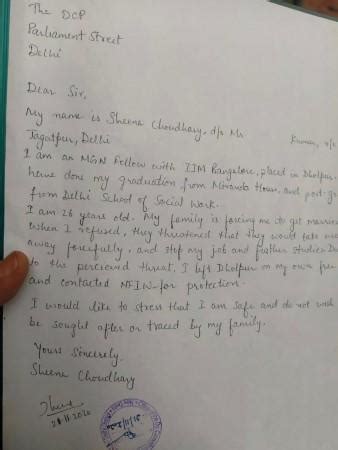 The DCP
Parliament Street
Delhi
Dear Sir,
My name is Sheena Choudhary, d/o Mr Kumar, r/o
Jagatpur, Delhi
I am an MGN Fellow with IIM Bangalore, placed in Dholpur.
have done my graduation from Miranda House, and post-gr
from Delhi School of Social Work.
I am 26 years old. My family is forcing me to get married
When I refused, they threatened that they would take me
away forcefully, and stop my job and further studies. Du
to the percieved threat. I left Dholpur on my own free
and contacted NFIW for protection.
I would like to stress that I am safe and do not wish
be sought after or traced by my family.
Yours Sincerely,
Sheena Choudhary
21.11.2020